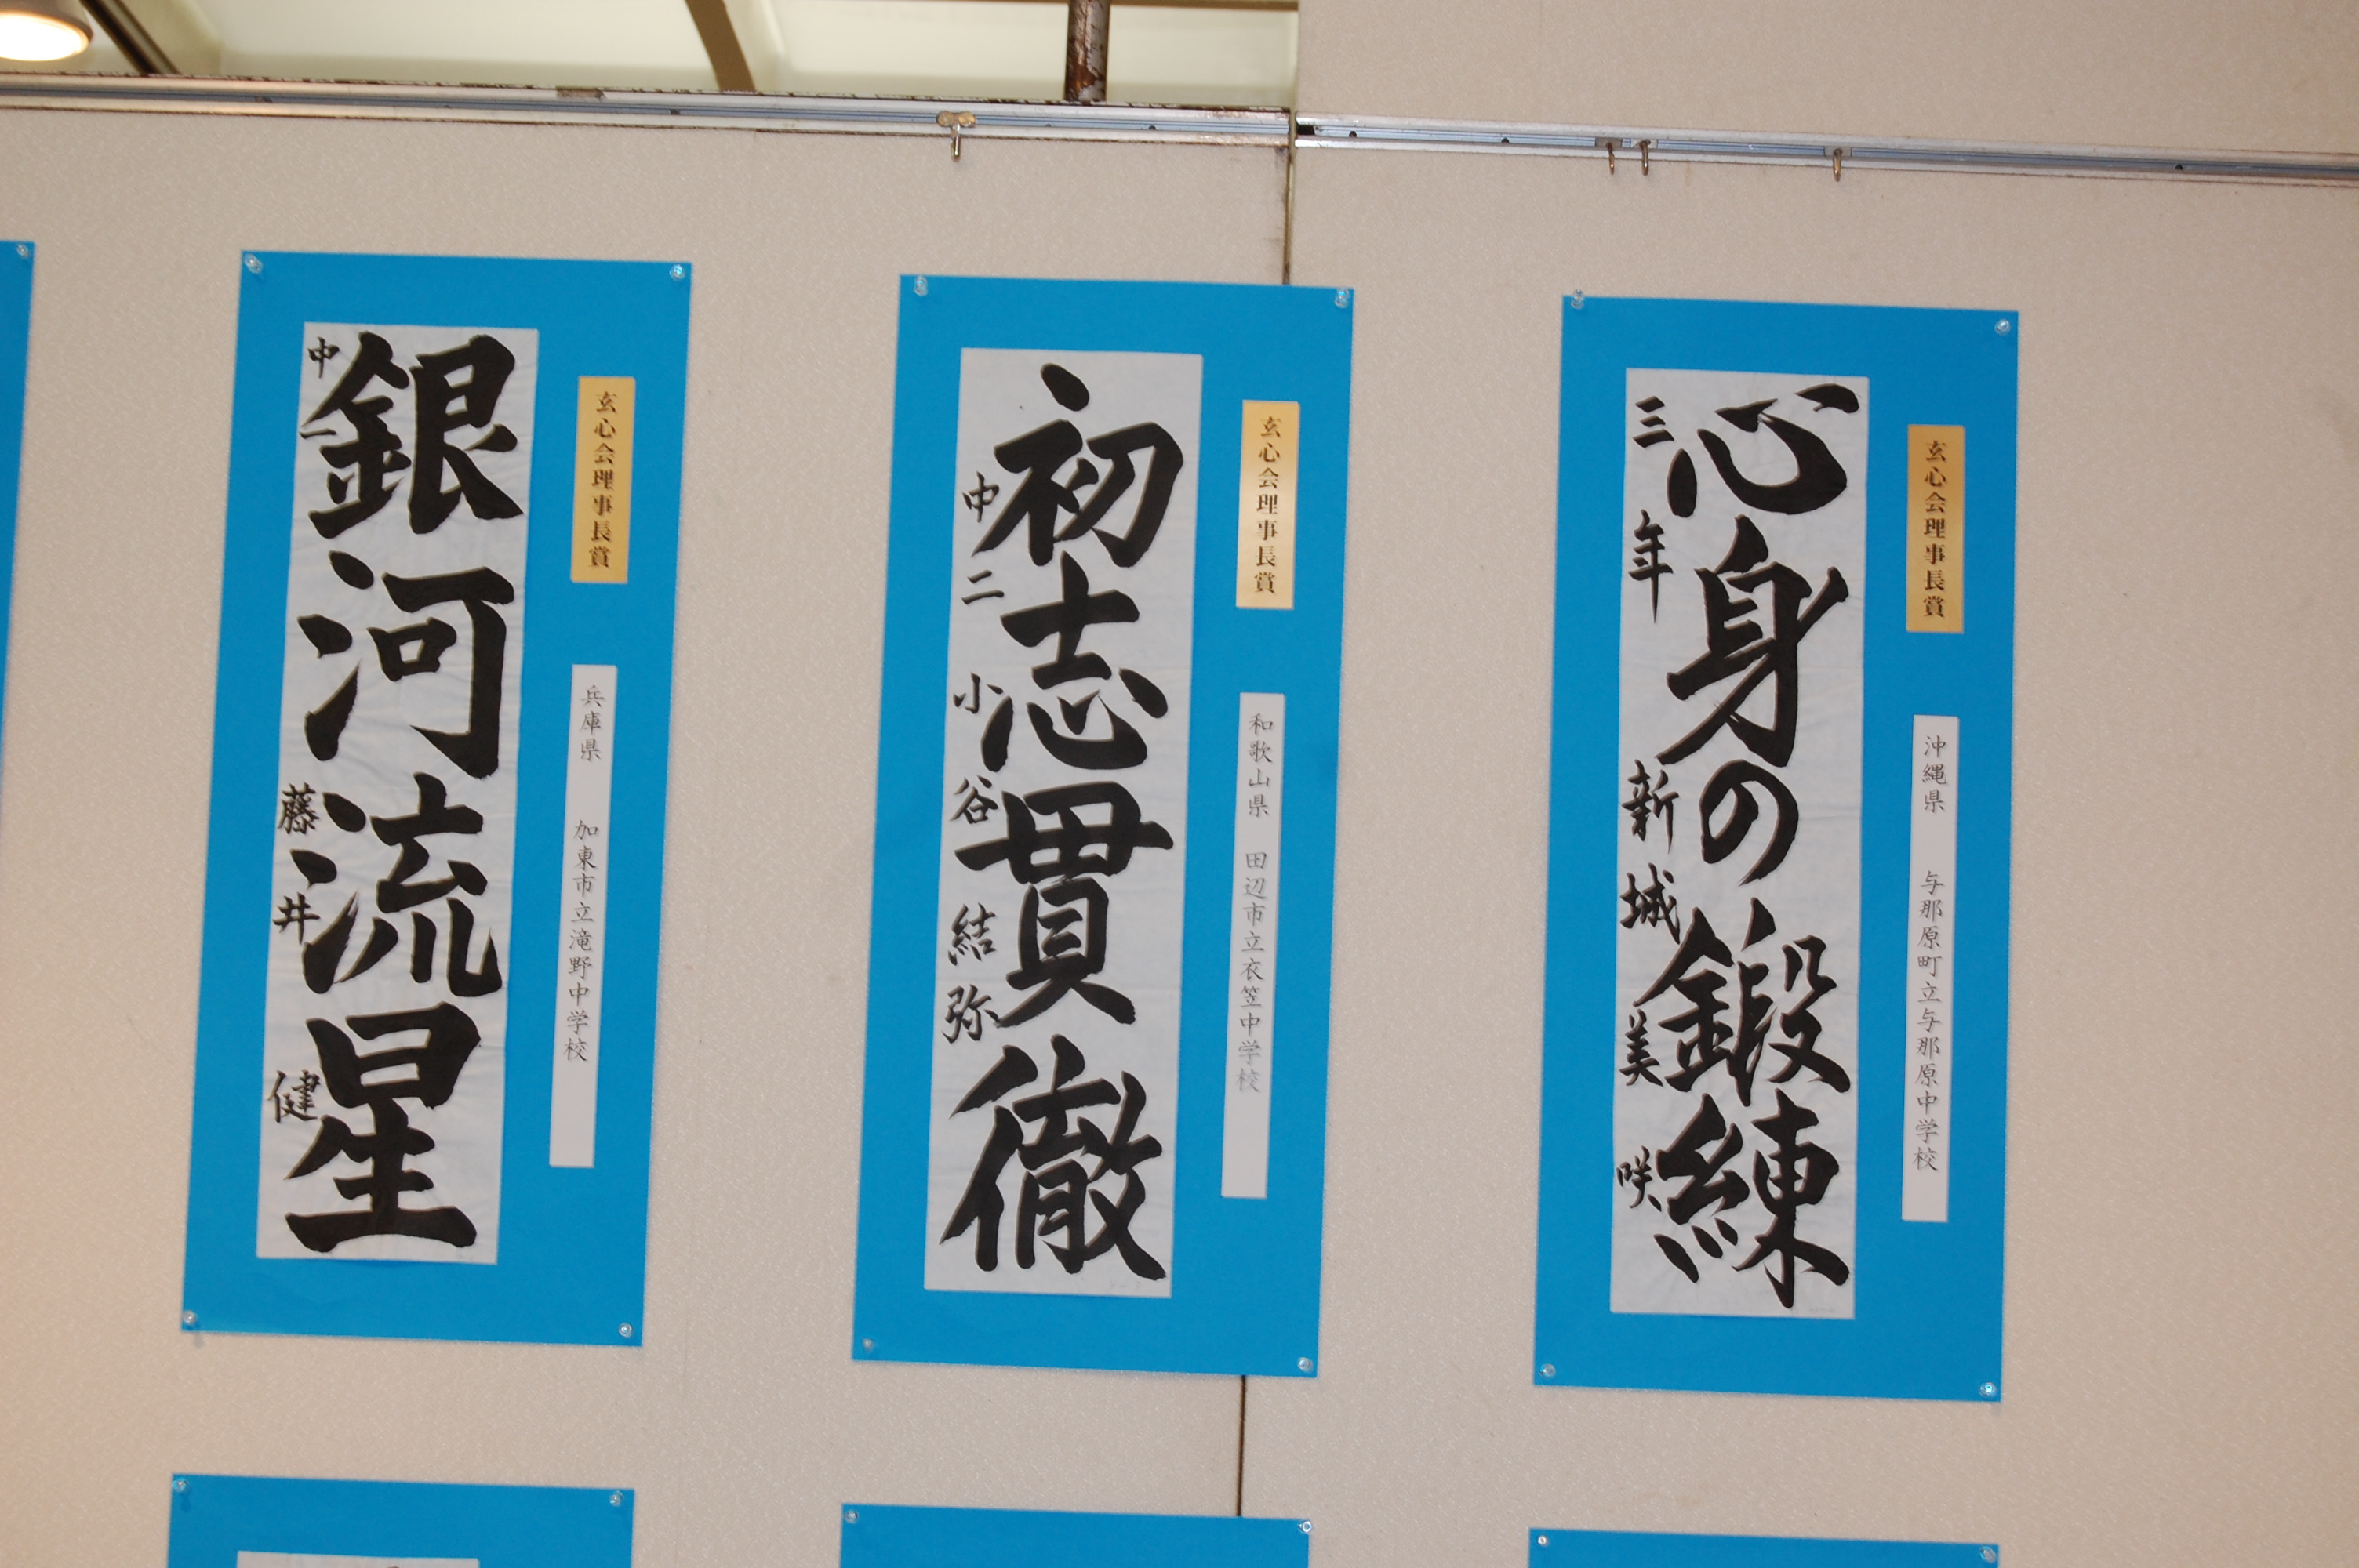 玄心会理事長賞
沖縄県 与那原町立与那原中学校
心身の鍛練
三年 新城美咲
玄心会理事長賞
和歌山県 田辺市立衣笠中学校
初志貫徹
中二 小谷結弥
玄心会理事長賞
兵庫県 加東市立滝野中学校
銀河流星
中一 藤井健